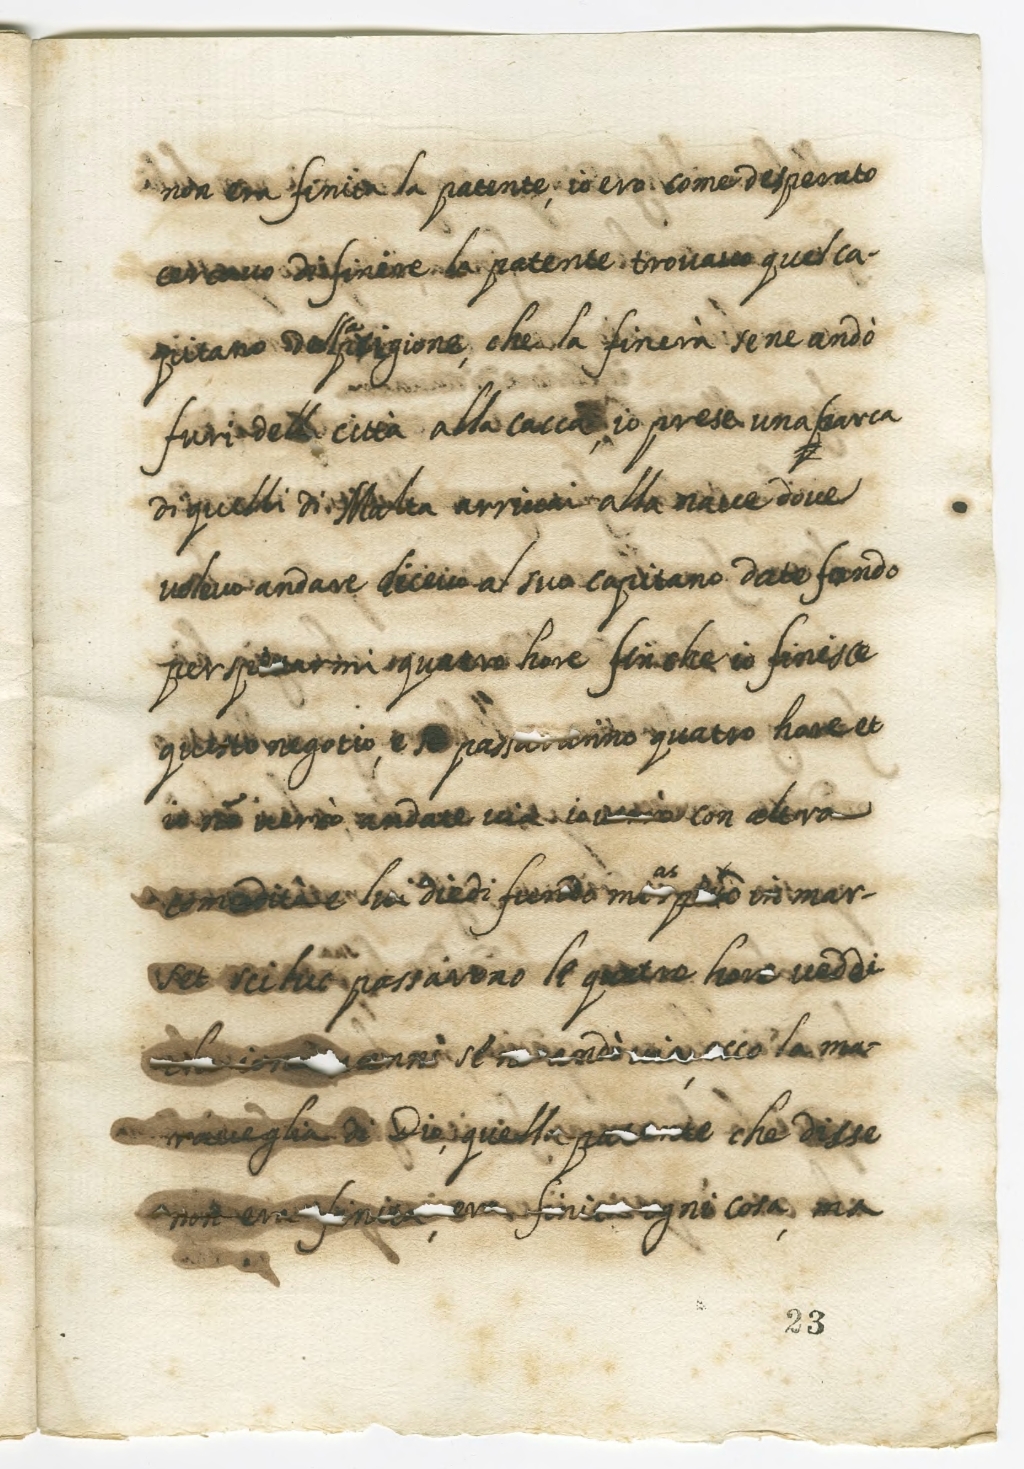 non era finita la patente, io ero come desperato
cercavo di finire la patente trovavo quel ca-
pitano della prigione, che la finerà se ne andò
furi dell città alla cacca, io prese una barca
di quelli di Malta arrivai alla nave dove
volevo andare dicevo al suo capitano date fondo
per spetarmi quatro hore fin che io finisce
questo negotio, e se passaranno quatro hore et
io nõ verrò andate via io verrò con altra
comodità e lui diedi fundo mi aspetò in mar-
set sciluc passarono le quatro hore veddi
che io non venni se n andò via, ecco la ma-
raveglia di Dio, quella patente che disse
non era finita, era finita ogni cosa, ma
23